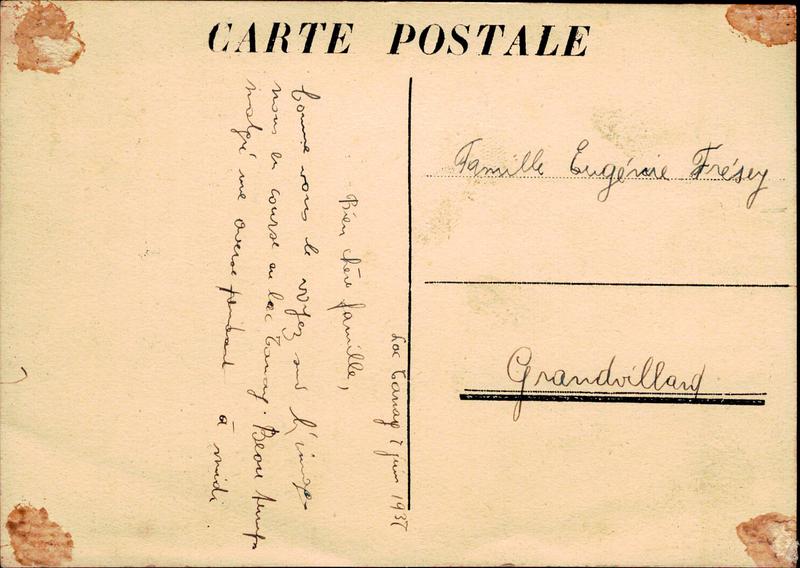 CARTE POSTALE
Lac Tanay 7 juin 1937
Bien chère famille,
Comme vous le voyez sur l'image
nous la course au lac Tanay. Beau temps
malgré une averse pendant à midi.
Famille Eugénie Frésey
Grandvillard